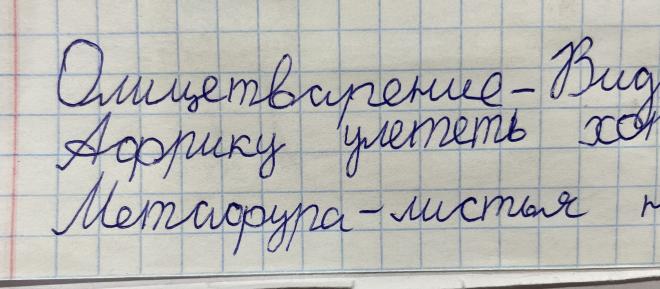 Олицетварение - Вид
Африку улететь хот
Метафура - листья н